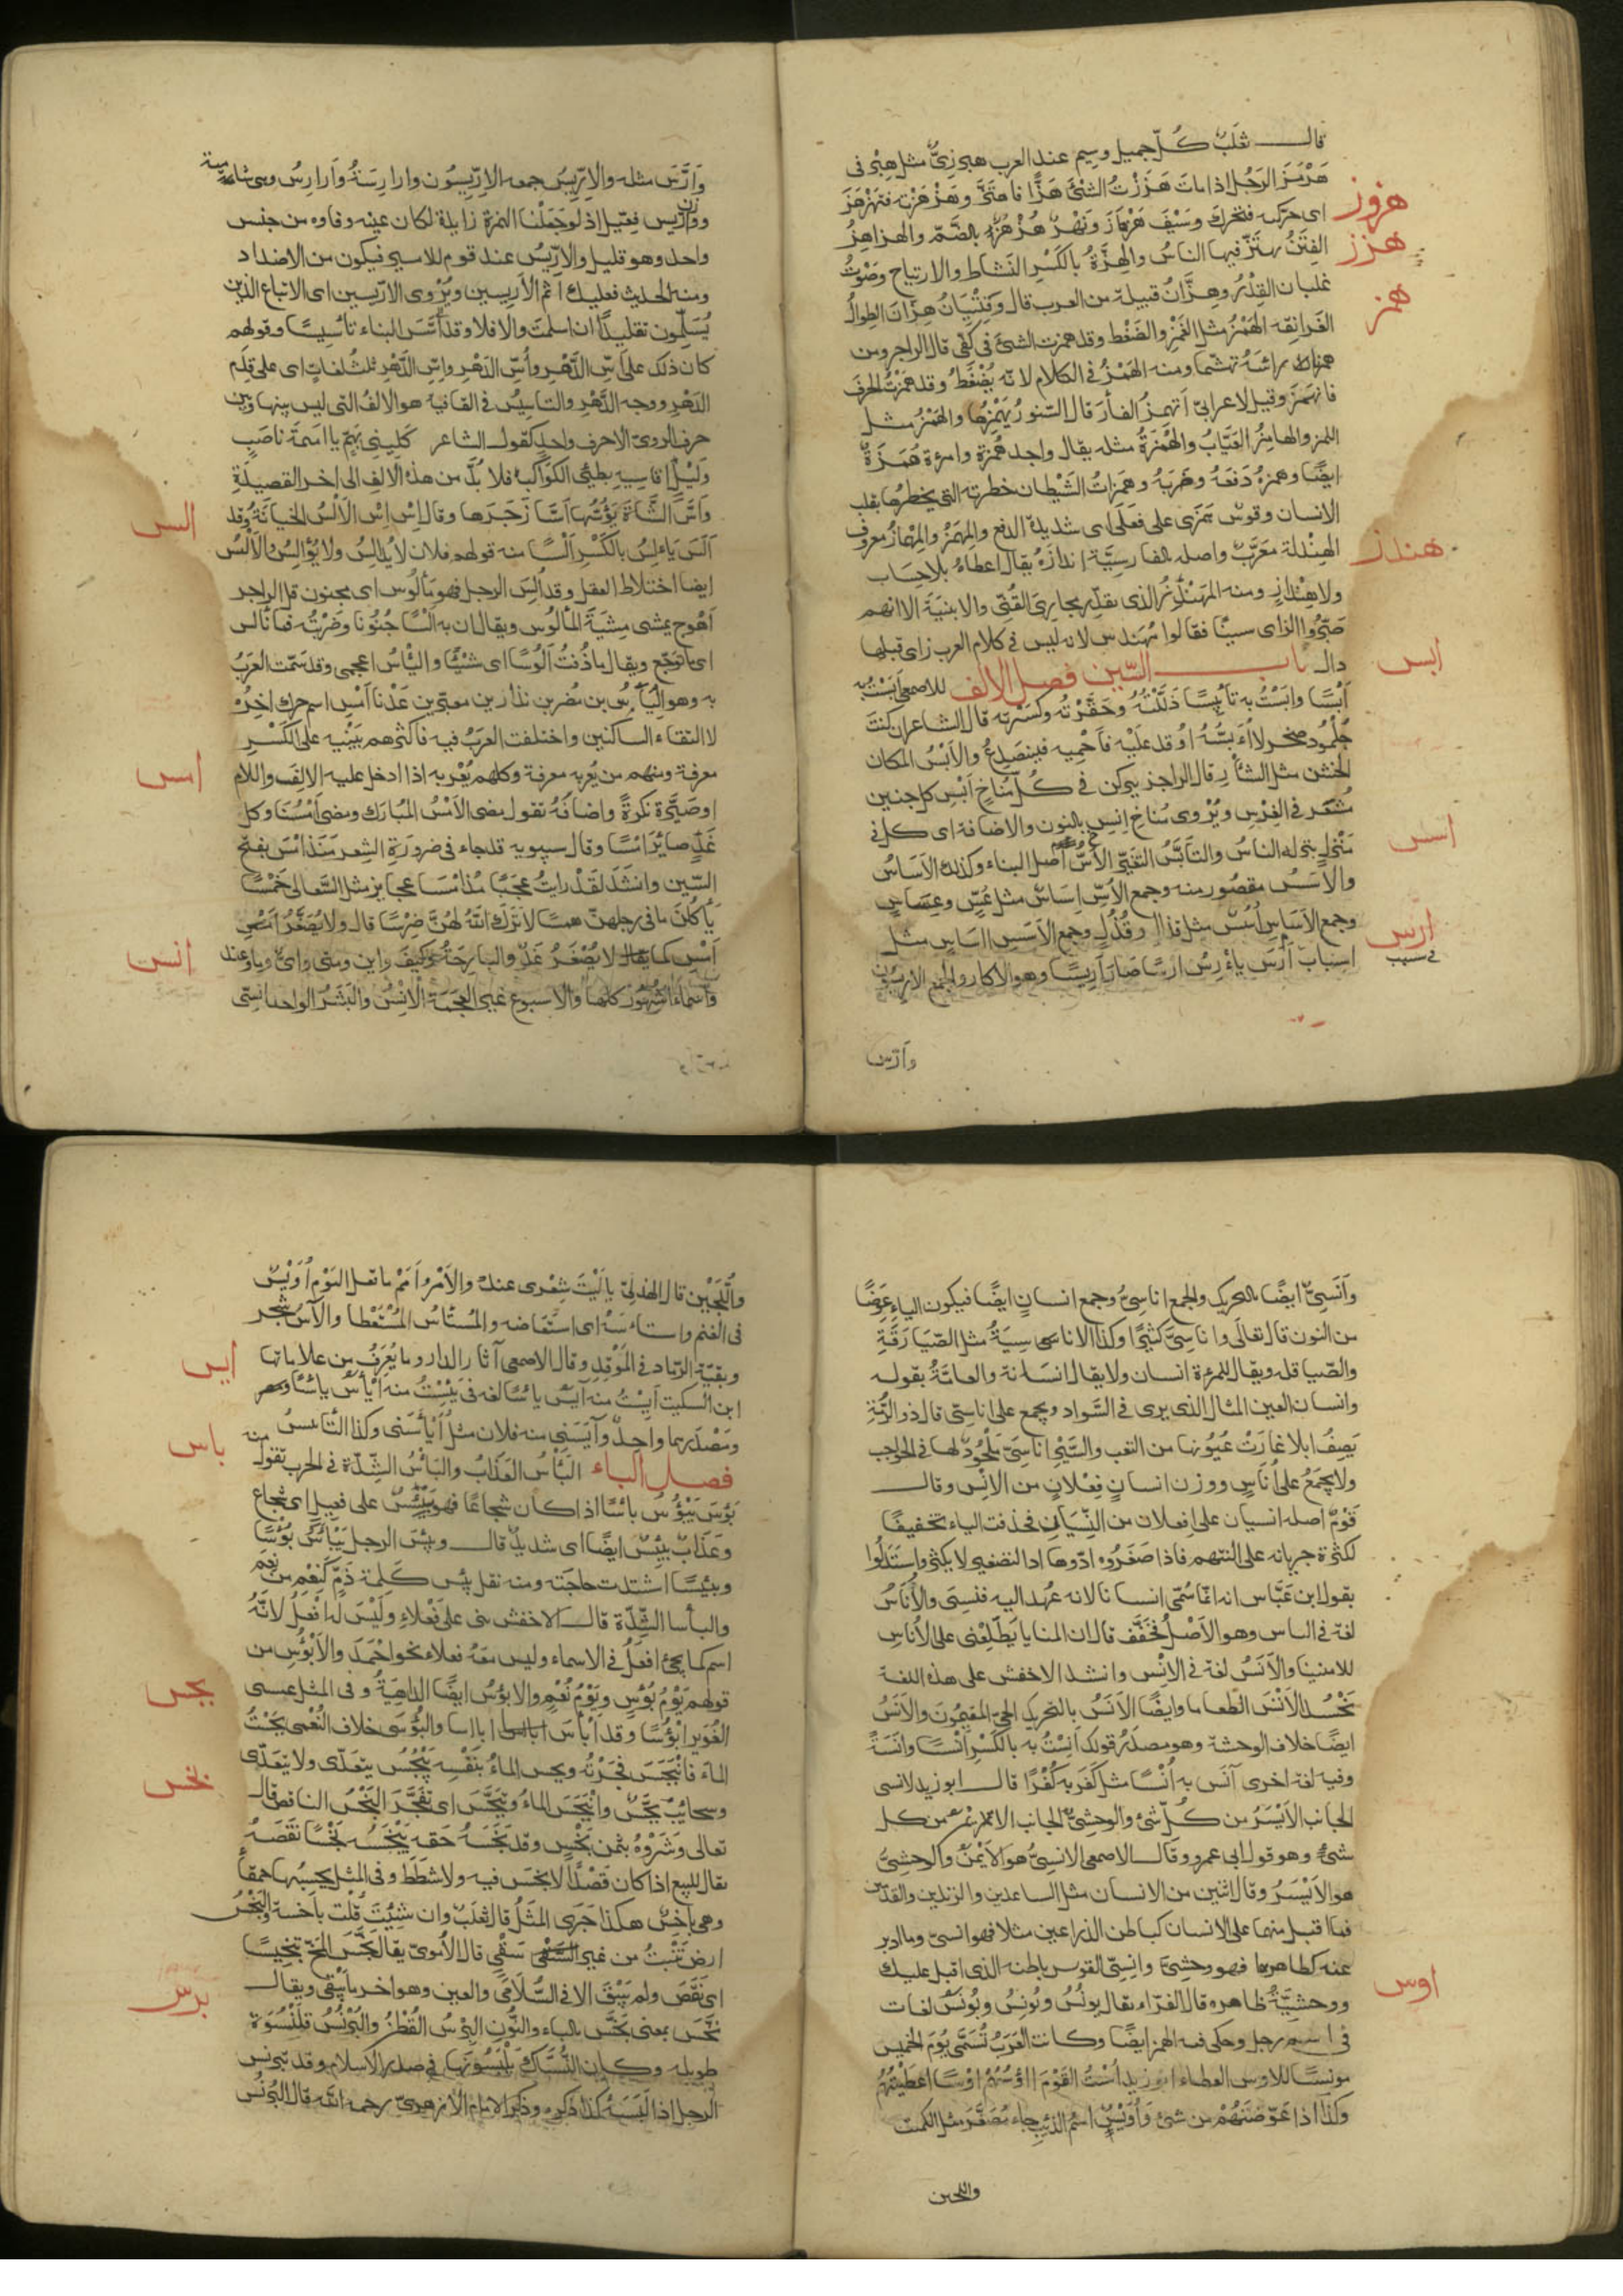 قال ثعلب كُلّ جميل وسيم عند العرب هبرزيّ مثل هبرقى
هَرْمَزَ الرَجُل اذا مات هَزَزْتُ الشئَ هَزًّا فاهتَزَّ وهَزْهَزْته فتهزهَزَ
هروز
اى حركه فتحرك وسَيْفٌ هَزْهازٌ ونَهْرٌ هُزْهُزٌ بالضّمّ والهزاهِزُ
هزز
الفِتَنُ يهتَزّ فيها الناسُ والهِزَّةُ بالكَسْرِ النَشاط والارتياح وصَوْتُ
غليان القِدْرُ وهِزَّانُ قبيلة من العرب قال وفِتْيَانُ هِزّانَ الطِوالُ
همز
الغَرانِقه الهَمْزُ مثل الغَمْزِ والضَغْط وقد همزت الشئَ فى كَفّى قال الراجز ومن
همزنا راسَهُ تهشّما ومنه الهَمْزُ فى الكلام لانّه يُضْغَطُ وقد همَزْتُ الحرفَ
فانْهَمَزَ وقيل لاعرابىّ أتهمزُ الفارَ قال السّنورُ يَهْمِزُها والهَمْزُ مثل
اللمز والهامِزُ العَيّابُ والهُمَزَةُ مثله يقال رجل هُمَزَة وامرءة هُمَزَةٌ
ايضًا وهمزهُ دَفَعَهُ وضَرَبَهُ وهَمَزاتُ الشَيْطان خطرته التى يخطرها بقلب
الانسان وقوسٌ هَمَزى على فَعَلَى اى شديدة الدفع والمِهْمَزُ والمِهْمازُ معروف
هندز
الهِنْدازة مُعَرَّبٌ واصله بالفارسيّة اندازَه يقال اعطاهُ بلا حِسَاب
ولا هِنْداز ومنه المُهَنْدِزُ الذى يقدّر مجارىَ القُنِىّ والابنية الا انهم
صَيّروا الزاى سينًا فقالوا مُهَندس لانه ليس فى كلام العرب زاى قبلها
دال باب السّين فصل الالف للاصمعى أَبَسْتُ به
ابس
أَبْسًا وابَسْتُ به تأبيسًا ذَلَّلْتُهُ وحَقَّرْتُه وكسّرته قال الشاعر ان كنت
جُلْمُودَ صخرٍ لا أُءَبِّسُهُ أوقد عَلَيْه فأَحْمِيه فينصَدِعُ والأَبْسُ المكان
الخشن مثل الشأز قال الراجز يتركن فى كُلّ مُناخٍ أَبْسِ كل جنين
مُشْعَر فى الغِرْسِ ويُرْوى مُناخِ إنسٍ بالنون والاضافة اى كل
اسس
منزل ينزله الناسُ والتأبُّسُ التغيّر الأُسُّ اصل البناء وكذلك الاَساسُ
والأَسَسُ مقصُور منه وجمع الاُسِّ اِسَاسٌ مثل عُسٍّ وعِسَاسٍ
وجمع الاَسَاسِ اُسُسٌ مثل قذال وقُذُلٍ وجمع الاَسَسِ آسَاسٌ مثل
ارس
اسبابٍ أَرَسَ ياءْرِسُ ارسًا صَارَ أَرِيسًا وهو الاكار والجمع الاريسون
فى سبب
وأرّس
وأَرَّسَ مثله والإرِّيسُ جمعه الإرِّيسُون وارارِسَةُ وأَرارِسُ وهى شاءمية
وارّيس فِعِّيل اذ لو جَعَلْنا الهمزة زايدة لكان عينه وفاوه من جنس
واحد وهو قليل والإرّيسُ عند قوم للامير فيكون من الاضداد
ومنه الحديث فعليك اثم الأريسين ويُرْوى الارّيسين اى الاتباع الذين
يُسَلِّمون تقليدًا ان اسلمتَ والا فلا وقد أسَّسَ البناء تأسِيسًا وقولهم
كان ذلك على أَسّ الدَّهْرِ وأُسّ الدَهْرِ وإسِّ الدَّهْرِ ثلث لغاتٍ اى على قِدَم
الدَهْرِ ووجه الدَّهْرِ والتاسيسُ فى القافية هو الالفُ التى ليس بينها وبين
حرف الروىّ الا حرف واحد كقول الشاعر كَلِينِى لِهَمٍّ يا اُمَيْمَةَ ناصَبِ
وَلَيْلٍ اُقاسِيهِ بطِئِ الكَوَاكِبِ فلا بُدَّ من هذه الالف الى اخر القصيدَةِ
وأَسَّ الشَّاةَ يَؤُسُّها أَسًّا زَجَرَها وقال إسْ إسْ الأَلْسُ الخيانَةُ وقد
الس
ألَسَ ياءلِسُ بالكَسْرِ ألْسًا منه قولهم فلان لا يُدالِسُ ولا يُؤَالِسُ والأَلْسُ
ايضا اختلاط العقل وقد أُلِسَ الرجل فهو مَأْلُوس اى مجنون قال الراجز
أهْوج يمشى مِشيَةَ المألوس ويقال ان به أَلْسًا جُنُونًا وضَرْبَه فما تألس
اى ما توجّع ويقال ما ذُقتُ أَلُوسًا اى شَيْئًا والياسُ اعجمى وقد سَمّت العربُ
به وهو الياس بن مُضر بن نذار بن معدّ بن عَدْنان أمسِ اسم حرك اخرُه
لالتقاء الساكنين واختلفت العربُ فيه فاكثرهم يَبْنِيه على الكَسْرِ
امس
معرفة ومنهم من يُعربه معرفة وكلهم يُعْربه اذا ادخل عليه الالف واللام
او صَيَّرَهُ نكرةً واضافَهُ تقول مضى الأمْسُ المُبارَك ومضى اَمْسُنا وكل
غَدٍ صايرٌ اَمْسًا وقال سيبويه قد جاء فى ضرورَةِ الشعر مُذ اَمسَ بفتح
السّين وانشَدَ لقَدْ رأيتُ عَجَبًا مُذْ اَمْسَا عجايز مثل السَّعالى خَمْسًا
يَأْكُلْنَ ما فى رحلِهنّ همسًا لا تَرَكَ اللهُ لَهُنَّ ضِرْسًا قال ولا يُصَغّرُ اَمسِ
اَمْس كما لا يُصْغَّرُ غَدٌ والبارِحَةُ وكَيفَ واين ومتى واىّ وما وعند
انس
واسماء الشُهُور كلها والاسبوع غير الجمعة الاِنْسُ والبَشَرُ الواحد انسىّ
وأَنَسِىٌّ ايضًا بالتحريك والجمع اناسِىُّ وجمع انسانٍ ايضًا فيكون الياءُ عِوَضًا
من النون قال تعالى واناسِىَّ كثيرًا وكذا الاناسيةُ مثل الصّيَارَفَةِ
والصّياقلة ويقال للمرءة انسان ولا يقال انسانة والعامّةُ يقوله
وانسان العين المثال الذى يرى فى السّواد ويجمع على اناسِىّ قال ذو الرّمّة
يَصِفُ ابلا غارَتْ عُيُونها من التعب والسَّيْر اناسِىّ مَلْحُودٌ لها فى الحواجب
ولا يُجمَعُ على أُناسٍ ووزن انسانٍ فِعْلان من الانس وقال
قَوْمٌ اصله انسيان على افعلان من النِّسْيَانِ فحذفت الياء تخفيفًا
لكَثْرَة جريانه على السنتهم فاذا صَغّرُوه ردّوها اذ التصغير لا يكثر واستدلوا
بقول ابن عَبّاس انه انّما سُمّى انسانا لانه عُهِدَ اليه فنَسِىَ والأُناسُ
لغة فى الناس وهو الاَصْلُ فخَفَّف قال ان المنايا يَطّلِعْنَ على الاُناسِ
الامنينا والاَنَسُ لغة فى الاِنْسِ وانشد الاخفش على هذه اللغة
الأَنَسَ الطعاما وايضًا الاَنَسُ بالتحريك الحىّ المقيمُون والاَنَسُ
ايضًا خلاف الوحشة وهو مصدَر قولك اَنِسْتُ به بالكَسْرِ اَنَسًا وانَسَةً
وفيه لغة اخرى آنَسَ به اُنْسًا مثل كَفَرَ به كُفْرًا قال ابو زيد الانسى
الجانب الاَيْسَرُ من كُلّ شئ والوحشىّ الجانب الايمن من كل
شئ وهو قول ابى عمرو وقال الاصمعى الانسىُّ هو الاَيْمَنُ والوحشىُّ
هو الاَيْسَرُ وقال اثنين من الانسان مثل الساعدين والزندين والقدمين
فما اقبل منهما على الانسان كباطن الذراعين مثلا فهو انسىّ وما ادبر
عنه كظاهرها فهو وحشىّ وانسِىّ القوس باطنه الذى اقبل عليك
ووحشيّةُ ظاهره قال الفرّاء يقال يونُسُ ويُونِسُ ويُونَسُ لغات
اوس
فى اسم رجل وحكى فيه الهمز ايضًا وكانت العَرَبُ تُسَمّى يَوْمَ الخميس
مونسًا الاوس العطاء ابو زيد اُسْتُ القَوْمَ أَؤُسُهُمْ اَوْسًا اعطَيْتُهُمْ
وكذا اذا عَوّضْتَهُمْ من شئ واُوَيْسٌ اسمُ الذئب جاء مُصَغّرًا مثل الكميت
واللجين
واللُّجَيْن قال الهذلىّ يا لَيْتَ شِعْرى عنك والاَمْرُ اَمَمْ ما فعل اليَوْم اُوَيْسٌ
فى الغنم واستاءسَهُ اى استَعَاضَه والمُستَاسُ المُسْتَعْطَا والآسُ شجر
وبقيّةُ الرماد فى المَوْقِدِ وقال الاصمعى آثار الدار وما يُعْرَفُ من علاماتها
ايس
ابن السكيت اَيِسْتُ منه آيَسُ يائسًا لغة فى يَئِسْتُ منه اَيْأَسُ يأسًا
ومَصْدَرهما واحِدٌ وآيَسَنى منه فلان مثل اَيْأَسَنى وكذا التأييسُ
باس
فصل الباء البَأْسُ العَذَابُ والبَاْسُ الشِّدّة فى الحرب تقول منه
بَؤُسَ يَبْؤُسُ بأسًا اذا كان شجاعًا فهو بَئِيسٌ على فعيل اى شجاع
وعَذابٌ بَئِيسٌ ايضًا اى شديدٌ قال وبئِسَ الرجل يَبْأَسُ بُؤْسًا
وبئيسًا اشتدت حاجَتَه ومنه نقل بِئس كَلِمَة ذَمٍّ كَنِعْم من نَعِمَ
والباسا الشِّدّة قال الاخفش بنى على فَعْلاءِ ولَيْسَ له اَفْعَلُ لانّهُ
اسم كما يجئ اَفعَلُ فى الاسماء وليس معَهُ فعلاء نحو اَحْمَدَ والاَبْؤُسِ من
قولهم يَوْمُ بُؤْسٍ ويَوْمُ نُعْمٍ والابؤُسُ ايضًا الداهِيَةُ وفى المثل عسى
بجس
الغُوَيْرُ اَبْؤُسًا وقد اَبْأَسَ ابآسا والبُؤْسَى خلاف النُعْمى بَجَسْتُ
الماءَ فانْبَجَسَ فجَرْتُه وبجس الماءُ بنَفْسِه يَبْجُسُ يتعَدّى ولا يتعَدّى
بخس
وسحائبُ بُجَّسٌ وانْبَجَسَ الماءُ وتَبَجَّسَ اى تَفَجَّرَ البَخْسُ الناقص قال
تعالى وَشَرَوْهُ بثَمنٍ بَخْسٍ وقد بَخَسَهُ حَقه يَبْخَسُهُ بَخْسًا نقَصَهُ
يقال للبيع اذا كان قَصْدًا لا بخسَ فيه ولا شطَطَ وفى المثل يحسِبُها حمقا
وهى باخِسٌ هكذا جَرَى المَثَلُ قال ثعلَبٌ وان شِئْتَ قُلْت باخسة والبَخْسُ
ارضٌ تَنْبُتُ من غير سَقْىٍ قال الاُموىّ يقال بَخَّسَ المُخّ تبخيسًا
اى نَقَصَ ولم يَبْقَ الا فى السُّلَامَى والعين وهو اخر ما يَبْقى ويقال
برس
نَخَّسَ بمعنى بَخَّس بالباء والنُّون البِرْسُ القُطْنُ والبُرْنُسُ قَلَنْسُوَة
طويلة وكان النُّسّاكُ يَلْبَسُونَها فى صدر الاسلام وقد تبرنس
الرجل اذا لَبِسَهُ كذا ذكره وذكر الامام الازهرىّ رحمه الله قال البُرْنُسُ